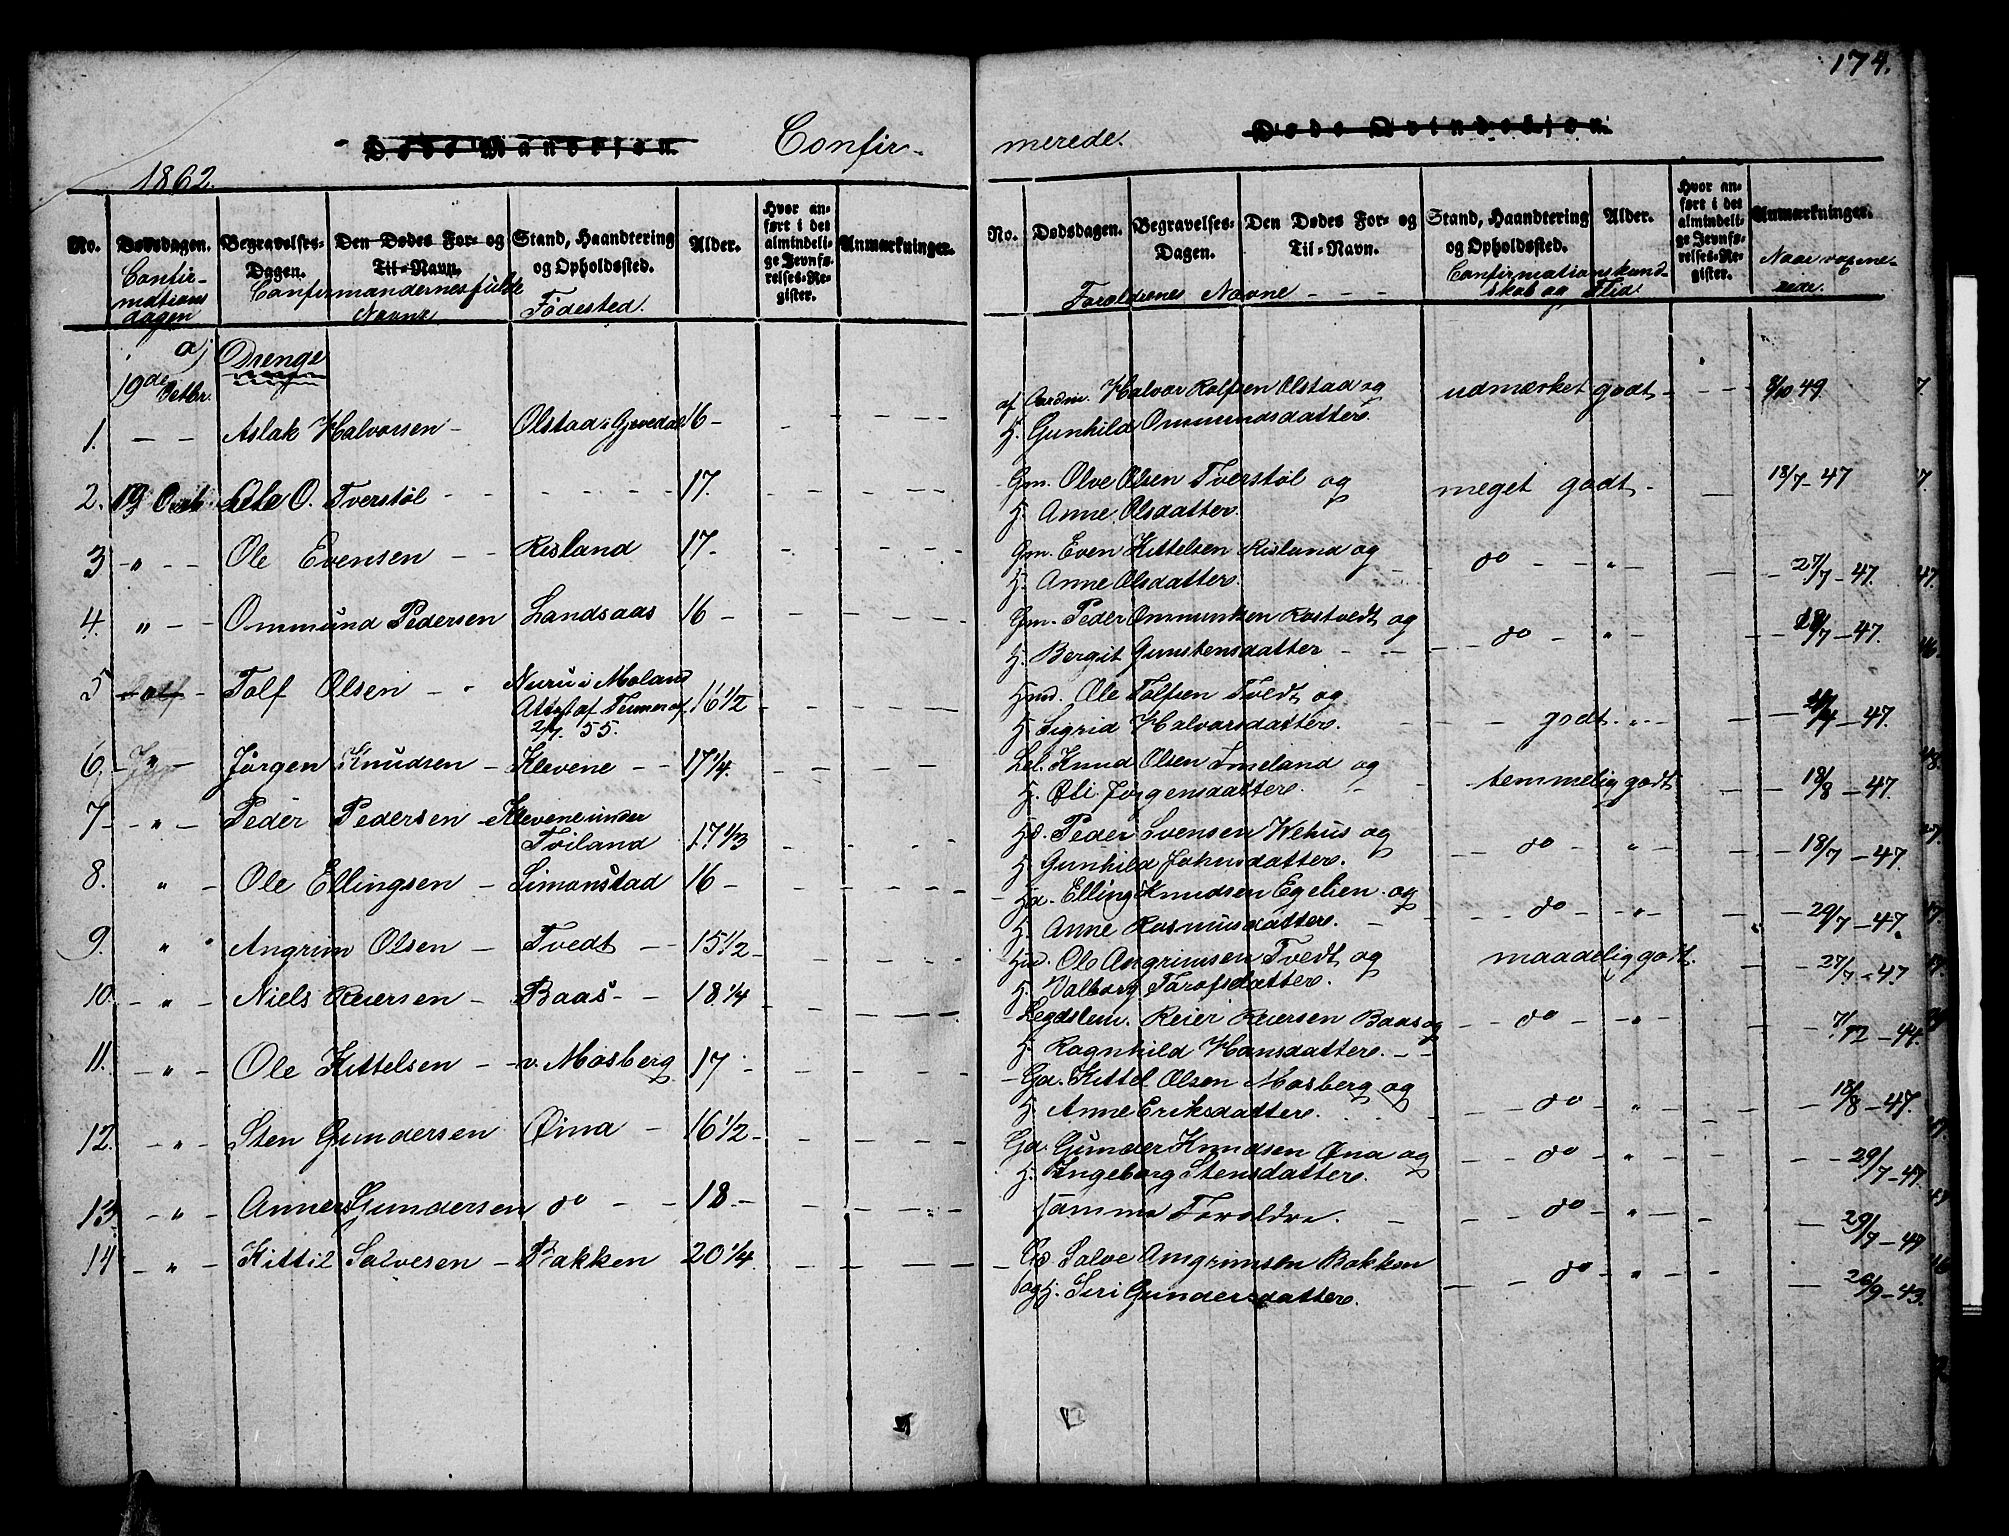 174.
Døde Mandkjøn.
Confir-
merede.
Døde Qvindekjøn.
1862.
No. Dødsdagen. Begravelses-Dagen. Den Dødes For- og Til-Navn. Stand, Haandtering og Opholdssted. Alder. Hvor anført i det almindelige Jevnførelses-Register. Anmærkninger.
Confirmations dagen Confirmandernes fulde Navne Fødested.
No. Dødsdagen. Begravelses-Dagen. Den Dødes For- og Til-Navn. Stand, Haandtering og Opholdssted. Alder. Hvor anført i det almindelige Jevnførelses-Register. Anmærkninger.
Forældrenes Navne - - - Confirmationskundskab og Flid. Naar vaccinerede.
a) Drenge
19de Octbr.
1. - - Aslak Halvorsen - Olstad i Gjøvedal 16 -
af Gaardm. Halvor Rolfsen Olstad og udmærket godt - - - 8/10 49
H. Gunhild Ommundsdatter.
2. 19 Octb. Ole O. Tverstøl - - 17.
Gm. Olve Olsen Tverstøl og meget godt - 18/7 - 47
H. Anne Olsdatter.
3 - " - - Ole Evensen - - Risland 17 -
Gm. Even Kittelsen Risland og do - - " - 27/7 - 47.
H. Anne Olsdatter.
4. " - - Ommund Pedersen Landsaas 16 -
Gm. Peder Ommundsen Rostvedt og do - " - 18/7 - 47.
H. Bergit Gunstensdatter
5 Tolf Olsen - Nuru i Moland
Attest af 16 1/2
2/7. 55.
Hmd. Ole Tolfsen Tvedt og
H. Sigrid Halvorsdatter. godt. " - 47.
6. - " - Jørgen Knudsen - Klevene - - 17 1/4.
Lel. Knud Olsen Imeland og temmelig godt 18/8 - 47.
H. Oli Jørgensdatter.
7 - - " - Peder Pedersen - Klevene under
Toiland 17 1/3
Hd. Peder Svensen Wehus og do " 18/7 - 47.
H. Gunhild Johnsdatter.
8. " - Ole Ellingsen - Simonstad 16 -
Hd. Elling Knudsen Egelien og do - - " - 29/7 - 47.
H. Anne Rasmusdatter. -
9. " Angrim Olsen - Tvedt - - 15 1/2 -
Hmd. Ole Angrimsen Tvedt og maadelig godt. 27/7 - 47
H. Valborg Tarofsdatter.
10. - " - Niels Reiersen - Baas - - 18 1/4
Legdslem. Reier Reiersen Baas og - - do - - " - 7/12 - 44.
H. Ragnhild Hansdatter. - -
11. - " - Ole Kittelsen - v. Mosberg 17
Gd. Kittel Olsen Mosberg og do " 18/8 - 47.
H. Anne Eriksdatter.
12. - " Sten Gundersen Øina - 16 1/2 -
Gd. Gunder Knudsen Øna og do - " - 29/7 - 47.
H. Ingeborg Stensdatter.
13. - " - Anners Gundersen do - - 18 -
samme Forældre. - do - " - 29/7 - 47
14 - " - Kittil Salvesen - Bakken 20 1/4.
Gd Salve Angrimsen Bakken do - " - 26/9 - 43.
og H. Siri Gundersdatter.